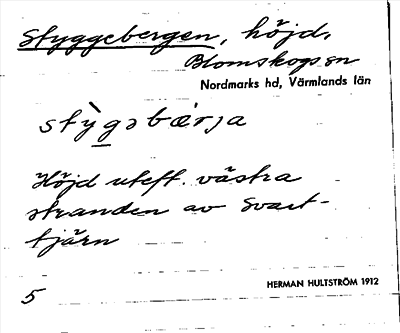 Styggebergen, höjd,
Blomskogs sn
Nordmarks hd, Värmlands län
sty̆̀gəbæ̀rja
Höjd uteft. västra
stranden av Svart-
tjärn
5
HERMAN HULTSTRÖM 1912